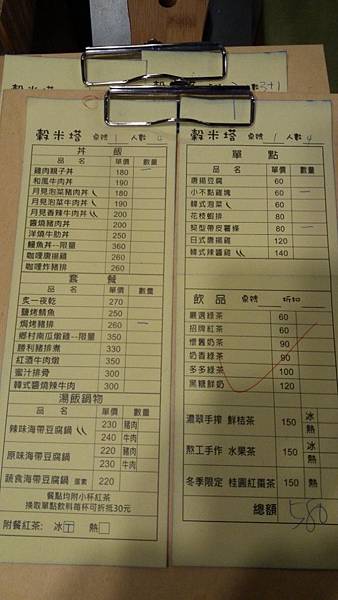 穀米塔 桌號 1 人數 4
丼 飯
品 名 單價 數量
雞肉親子丼 180
和風牛肉丼 180
月見泡菜豬肉丼 190
月見泡菜牛肉丼 190
月見香辣牛肉丼 200
醬燒豬肉丼 200
洋燒牛肋丼 260
鰻魚丼--限量 360
咖哩唐揚雞 260
咖哩炸豬排 260
套 餐
品 名 單價 數量
炙一夜乾 270
鹽烤鯖魚 250
焗烤豬排
鄉村南瓜燉雞--限量 350
勝利豬排煮 330
紅酒牛肉燉 350
蜜汁排骨 300
韓式醬燒辣牛肉 300
湯飯鍋物
品 名 單價 數量
辣味海帶豆腐鍋 230 豬肉
240 牛肉
原味海帶豆腐鍋 220 豬肉
230 牛肉
蔬食海帶豆腐鍋 蛋素 220
餐點均附小杯紅茶
換取單點飲料每杯可折抵30元
附餐紅茶: 冰 熱
穀米塔 桌號 1 人數 4
單 點
品 名 單價 數量
唐揚豆腐 60
小不點雞塊 60
韓式泡菜 60
花枝蝦排 80
契型帶皮薯條 80
日式唐揚雞 120
韓式辣醬雞 140
飲 品 桌號 折扣
品 名 單價 數量
嚴選綠茶 60
招牌紅茶 60
懷舊奶茶 90
奶香綠茶 90
多多綠茶 100
黑糖鮮奶 120
濃萃手搾 鮮桔茶 150 冰 熱
熬工手作 水果茶 150 冰 熱
冬季限定 桂圓紅棗茶 150 熱
總額 580
3+1